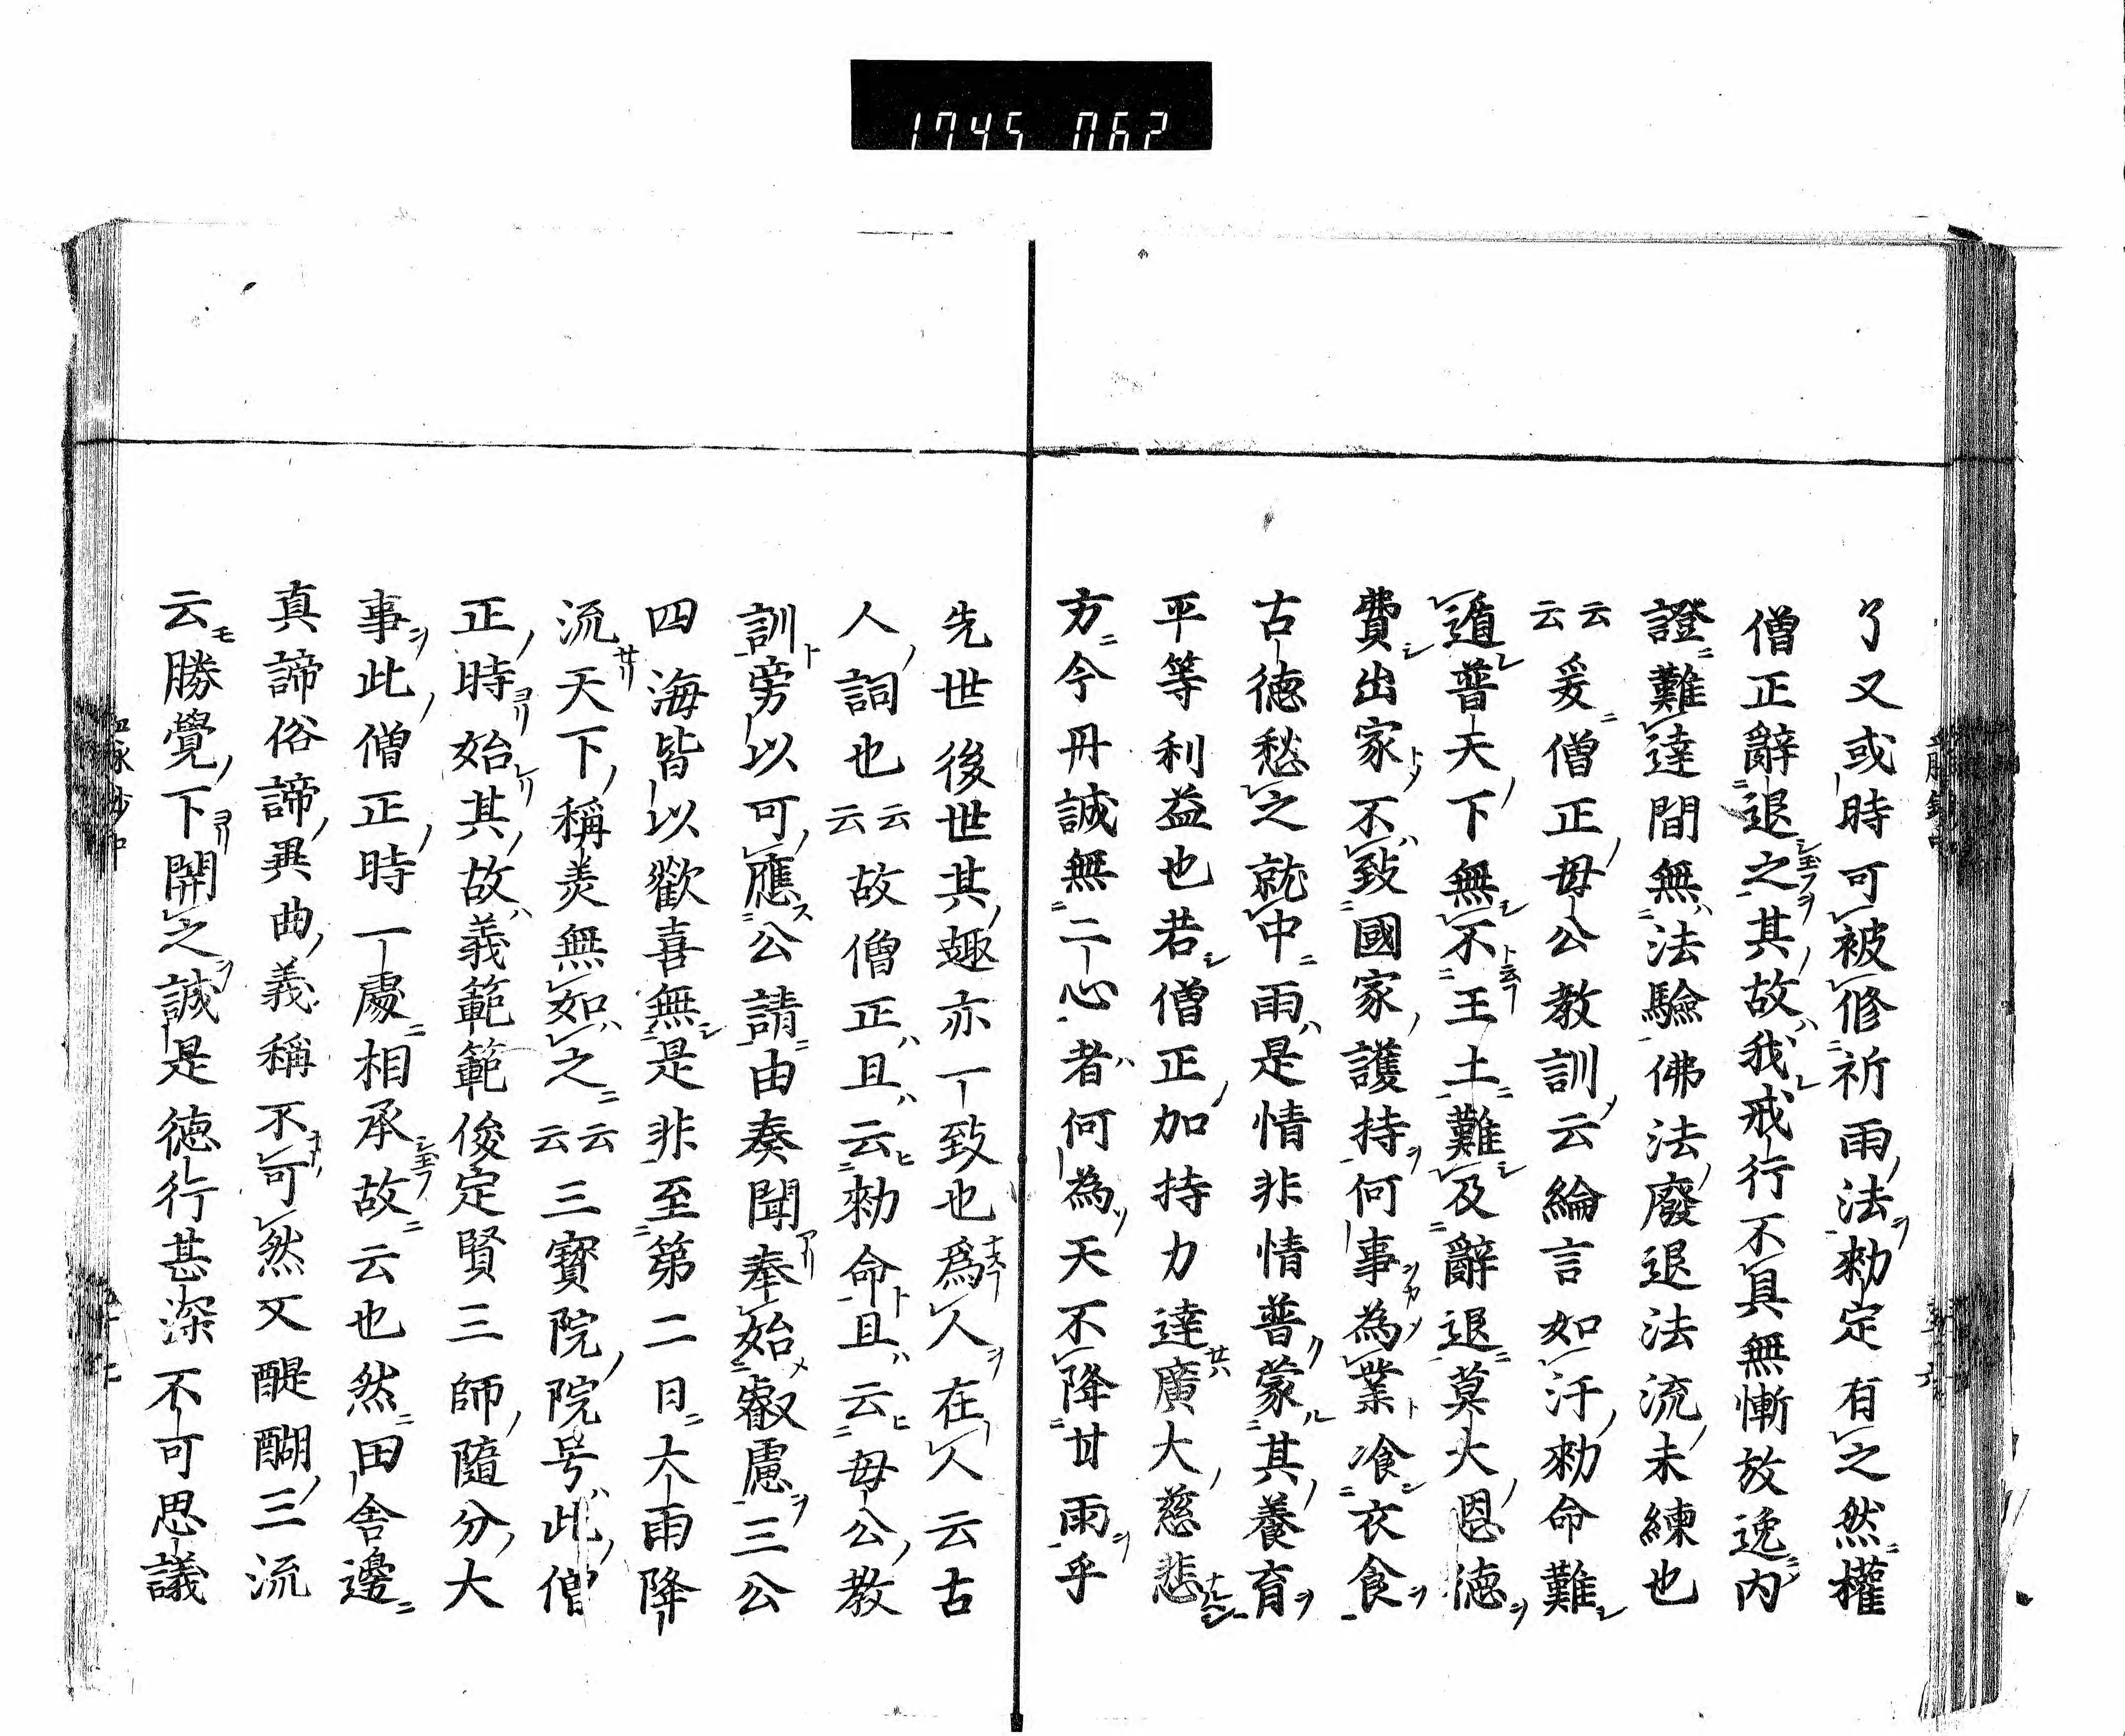 1745 062
了又或時可被修祈雨法勅定有之然權
僧正辭退之其故我戒行不具無慚放逸内
證難達間無法驗佛法廢退法流未練也
云云爰僧正母公教訓云綸言如汗勅命難
遁普天下無不王土難及辭退莫大恩德
費出家不致國家護持何事為業飡衣食
古德愁之就中雨是情非情普蒙其養育
平等利益也若僧正加持力達廣大慈悲
方今丹誠無二心者何為天不降甘雨乎
先世後世其趣亦一致也爲人在人云古
人詞也云云故僧正且云勅命且云母公教
訓旁以可應公請由奏聞奉始叡慮三公
四海皆以歡喜無是非至第二日大雨降
流天下稱羙無如之云云三寳院院号此僧
正時始其故義範範俊定賢三師隨分大
事此僧正時一處相承故云也然田舎邊
真諦俗諦異曲義稱不可然又醍醐三流
云勝覺下開之誠是德行甚深不可思議